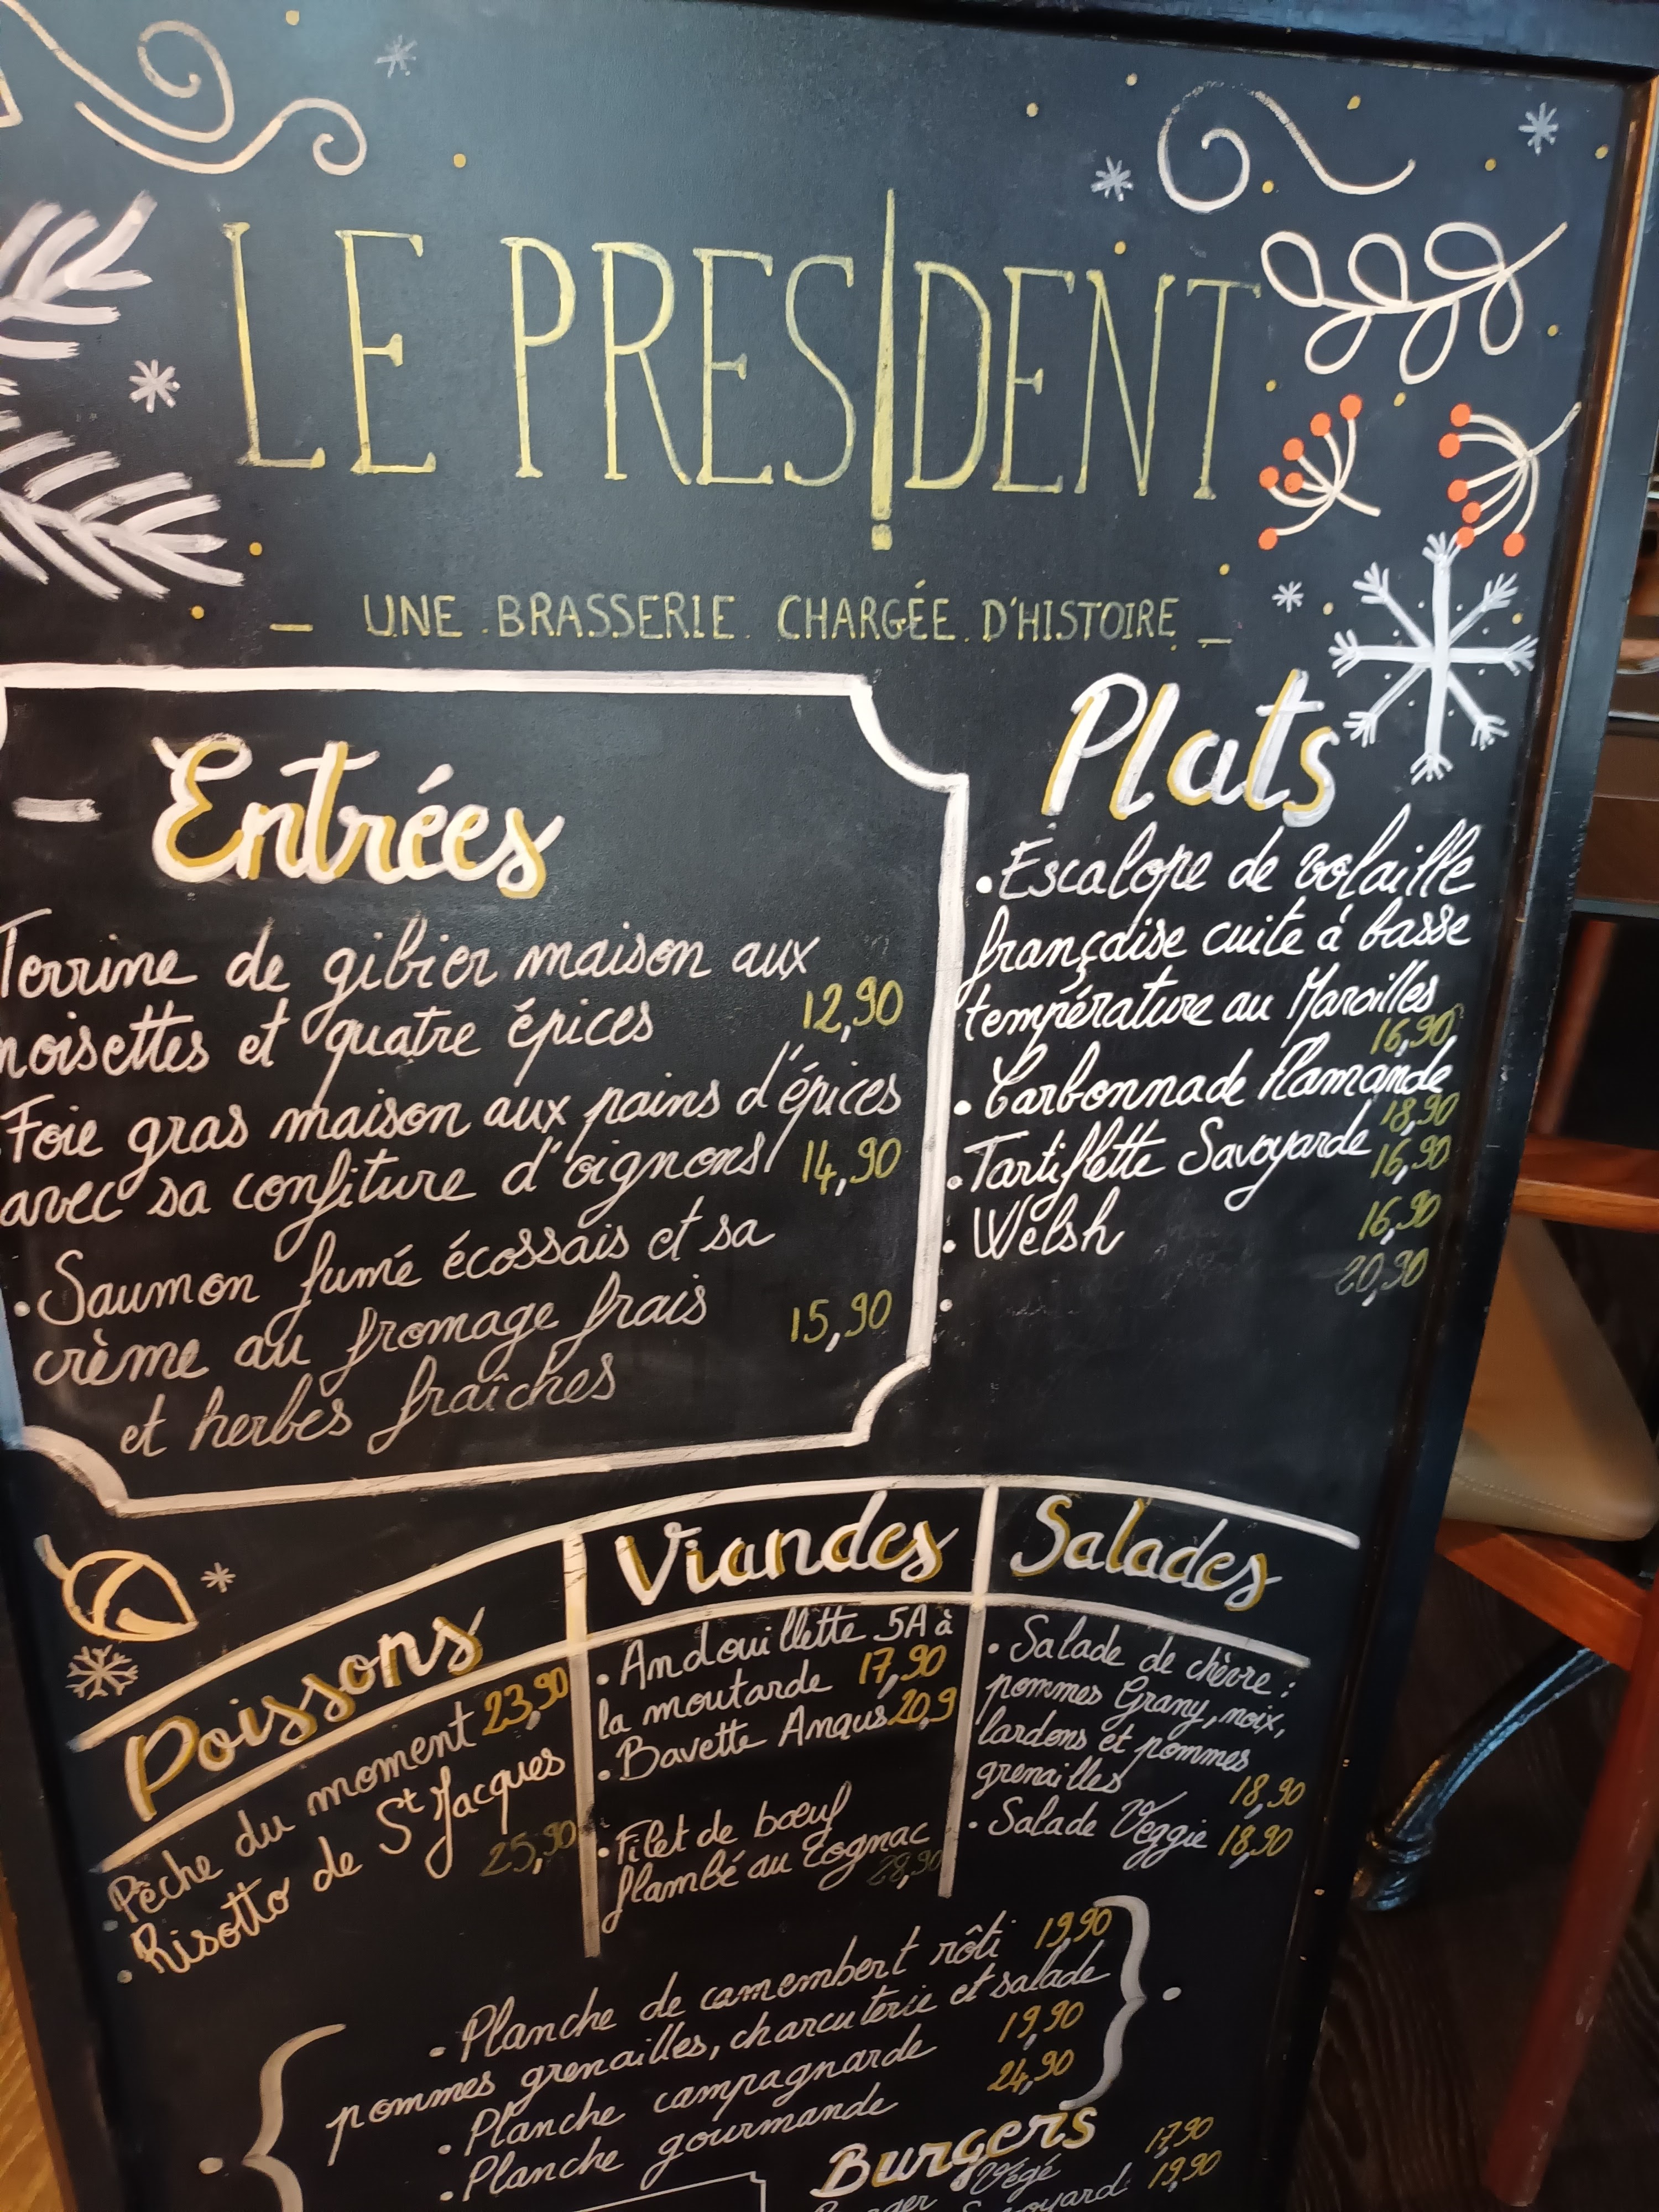 LE PRESIDENT
_ UNE BRASSERIE CHARGÉE D'HISTOIRE _
Entrées
Terrine de gibier maison aux
noisettes et quatre épices 12,90
Foie gras maison aux pains d'épices
avec sa confiture d'oignons 14,90
• Saumon fumé écossais et sa
crème au fromage frais 15,90
et herbes fraîches
Plats
• Escalope de volaille
française cuite à basse
température au Maroilles
16,90
• Carbonnade Flamande
18,90
• Tartiflette Savoyarde 16,90
• Welsh 16,90
20,90
Poissons
• Pêche du moment 23,90
• Risotto de St Jacques
25,90
Viandes
• Andouillette 5A à
la moutarde 17,90
• Bavette Angus 20,9
• Filet de bœuf
flambé au Cognac
28,90
Salades
• Salade de chèvre :
pommes Grany, noix,
lardons et pommes
grenailles 18,90
• Salade Veggie 18,90
• Planche de camembert rôti 19,90
pommes grenailles, charcuterie et salade
• Planche campagnarde 19,90
• Planche gourmande 24,90
Burgers
Burger Végé 17,90
19,90